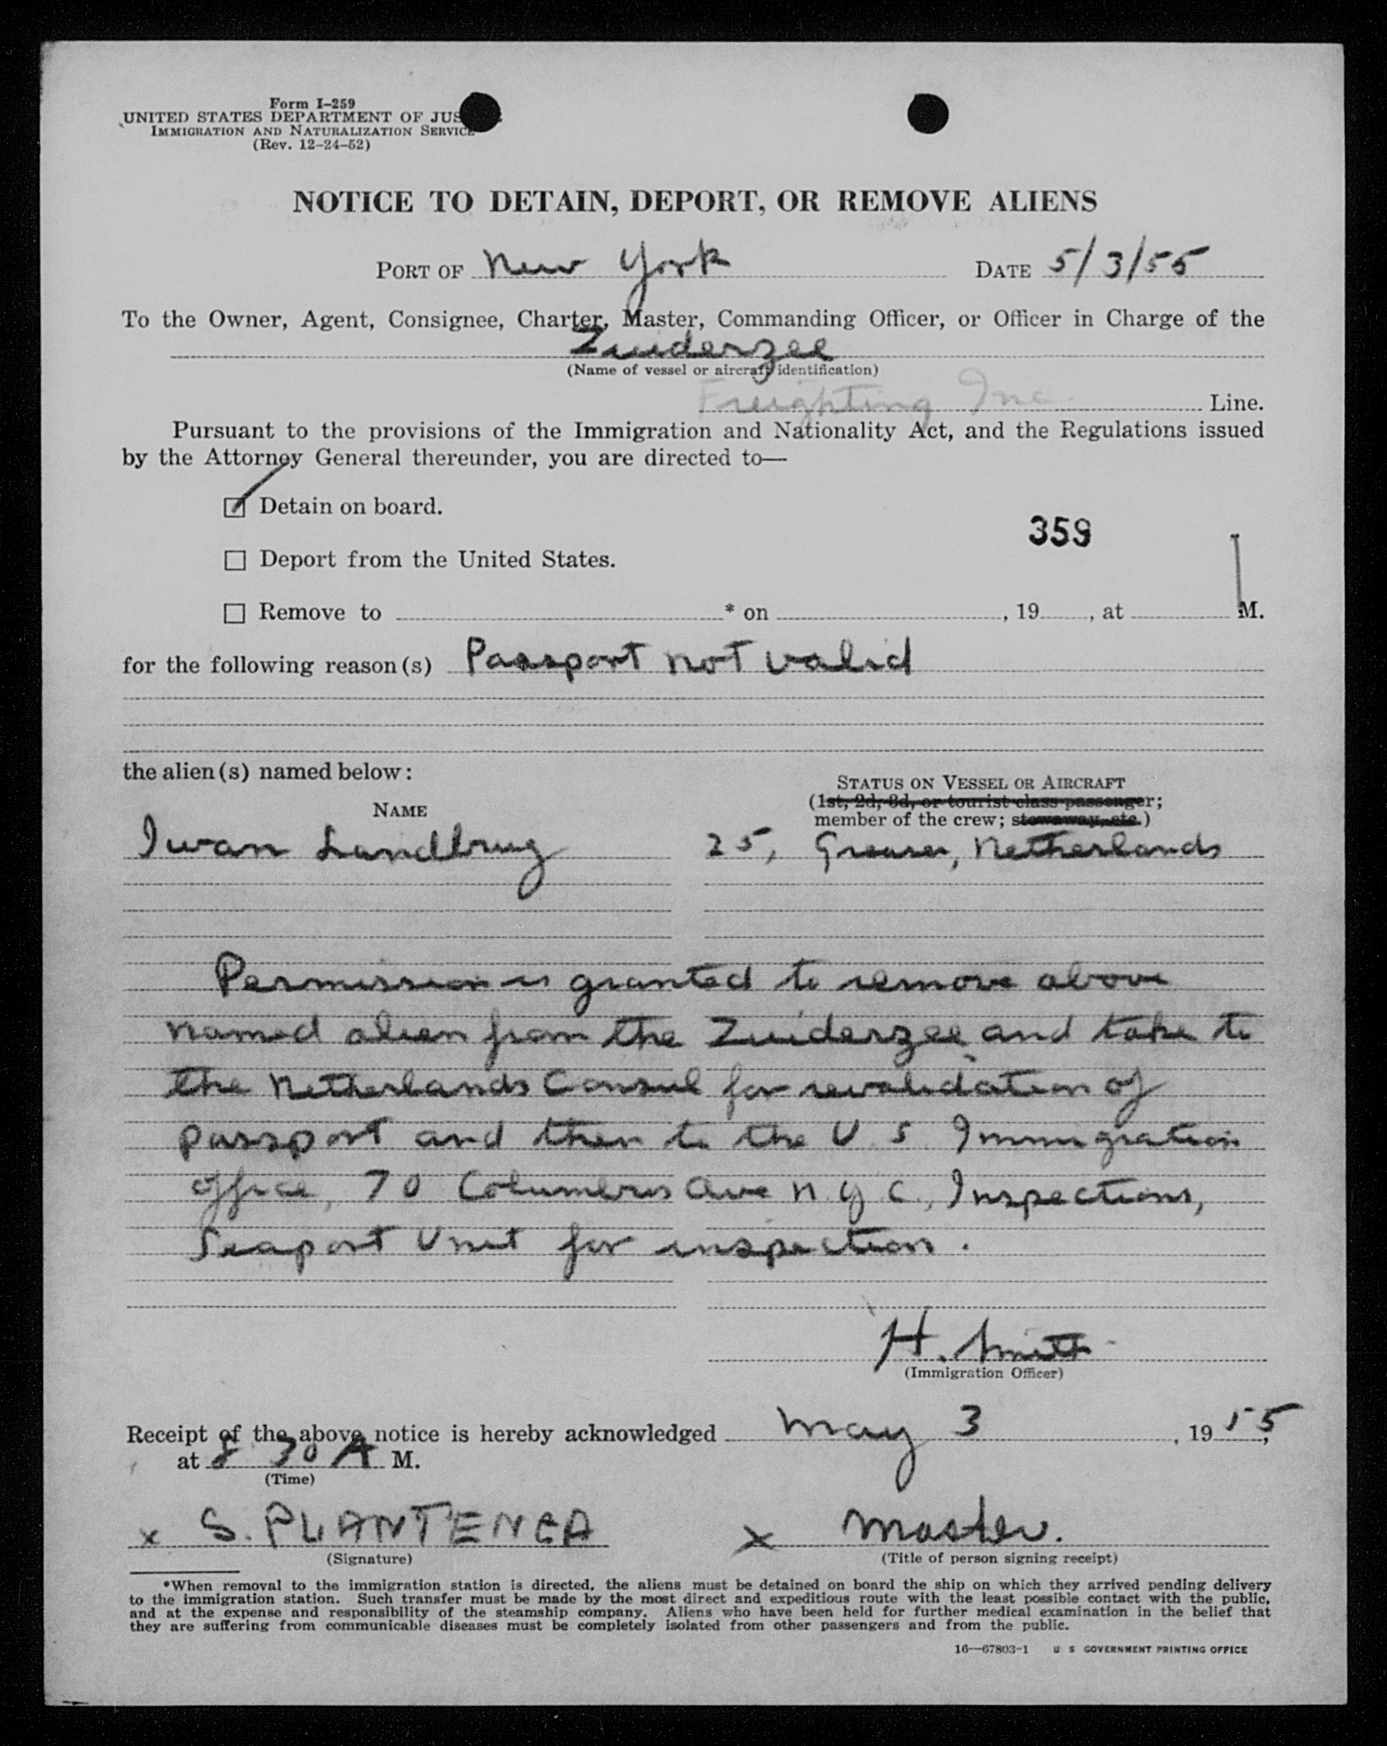 Form I-259
UNITED STATES DEPARTMENT OF JUS
IMMIGRATION AND NATURALIZATION SERVICE
(Rev. 12-24-52)
NOTICE TO DETAIN, DEPORT, OR REMOVE ALIENS
PORT OF New York DATE 5/3/55
To the Owner, Agent, Consignee, Charter, Master, Commanding Officer, or Officer in Charge of the
Zuiderzee
(Name of vessel or aircraft identification)
Freighting Inc. Line.
Pursuant to the provisions of the Immigration and Nationality Act, and the Regulations issued
by the Attorney General thereunder, you are directed to—
Detain on board.
359
Deport from the United States.
Remove to * on , 19 , at M.
for the following reason(s) Passport not valid
the alien(s) named below:
STATUS ON VESSEL OR AIRCRAFT
NAME (1st, 2d, 3d, or tourist class passenger;
member of the crew; stowaway, etc.)
Iwan Landbrug 25, Greaser, Netherlands
Permission is granted to remove above
named alien from the Zuiderzee and take to
the Netherlands Consul for revalidation of
passport and then to the U S Immigration
office, 70 Columbus Ave N Y C., Inspections,
Seaport Unit for inspection.
H. Smith
(Immigration Officer)
Receipt of the above notice is hereby acknowledged May 3, 1955,
at 8 30 A M.
(Time)
x S. PLANTENGA x Master.
(Signature) (Title of person signing receipt)
*When removal to the immigration station is directed, the aliens must be detained on board the ship on which they arrived pending delivery
to the immigration station. Such transfer must be made by the most direct and expeditious route with the least possible contact with the public,
and at the expense and responsibility of the steamship company. Aliens who have been held for further medical examination in the belief that
they are suffering from communicable diseases must be completely isolated from other passengers and from the public.
16—67803-1 U S GOVERNMENT PRINTING OFFICE